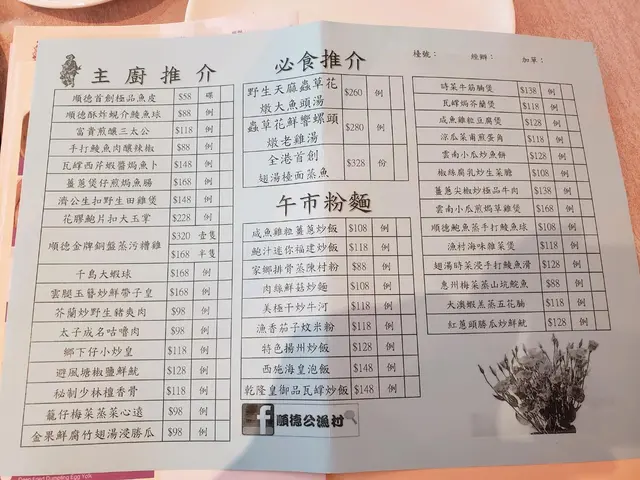 主廚推介
順德首創極品魚皮 $58 碟
順德酥炸蜆介鯪魚球 $88 例
富貴煎釀三太公 $118 例
手打鯪魚肉釀辣椒 $88 例
瓦罉西芹蝦醬焗魚卜 $148 例
薑蔥煲仔煎焗魚腸 $168 例
濟公生扣野生田雞煲 $148 例
花膠鮑片扣大玉掌 $228 例
順德金牌銅盤蒸污糟雞 $320 壹隻
$168 半隻
千島大蝦球 $168 例
雲腿玉簪炒鮮帶子皇 $168 例
芥蘭炒野生豬爽肉 $98 例
太子成名咕嚕肉 $98 例
鄉下仔小炒皇 $118 例
避風塘椒鹽鮮魷 $128 例
秘制少林檀香骨 $118 例
籠仔梅菜蒸菜心遠 $98 例
金果鮮腐竹翅湯浸勝瓜 $98 例
必食推介
野生天麻蟲草花
燉大魚頭湯 $260 例
蟲草花鮮響螺頭
燉老雞湯 $280 例
全港首創
翅湯檯面蒸魚 $328 份
午市粉麵
咸魚雞粒薑蔥炒飯 $108 例
鮑汁迷你福建炒飯 $118 例
家鄉排骨蒸陳村粉 $88 例
肉絲鮮菇炒麵 $108 例
美極干炒牛河 $118 例
漁香茄子炆米粉 $118 例
特色揚州炒飯 $128 例
西施海皇泡飯 $148 例
乾隆皇御品瓦罉炒飯 $148 例
順德公漁村
檯號：
經辦：
加單：
時菜牛筋腩煲 $138 例
瓦罉焗芥蘭煲 $118 例
咸魚雞粒豆腐煲 $128 例
涼瓜菜甫煎蛋角 $118 例
雲南小瓜炒魚餅 $128 例
椒絲腐乳炒生菜膽 $108 例
薑蔥尖椒炒極品牛肉 $138 例
雲南小瓜煎焗草雞煲 $168 例
順德鮑魚菜蒸手打鯪魚球 $108 例
漁村海味雜菜煲 $118 例
翅湯時菜浸手打鯪魚滑 $128 例
惠州梅菜蒸山坑鯇魚 $88 例
大澳蝦羔蒸五花腩 $118 例
紅蔥頭勝瓜炒鮮魷 $128 例